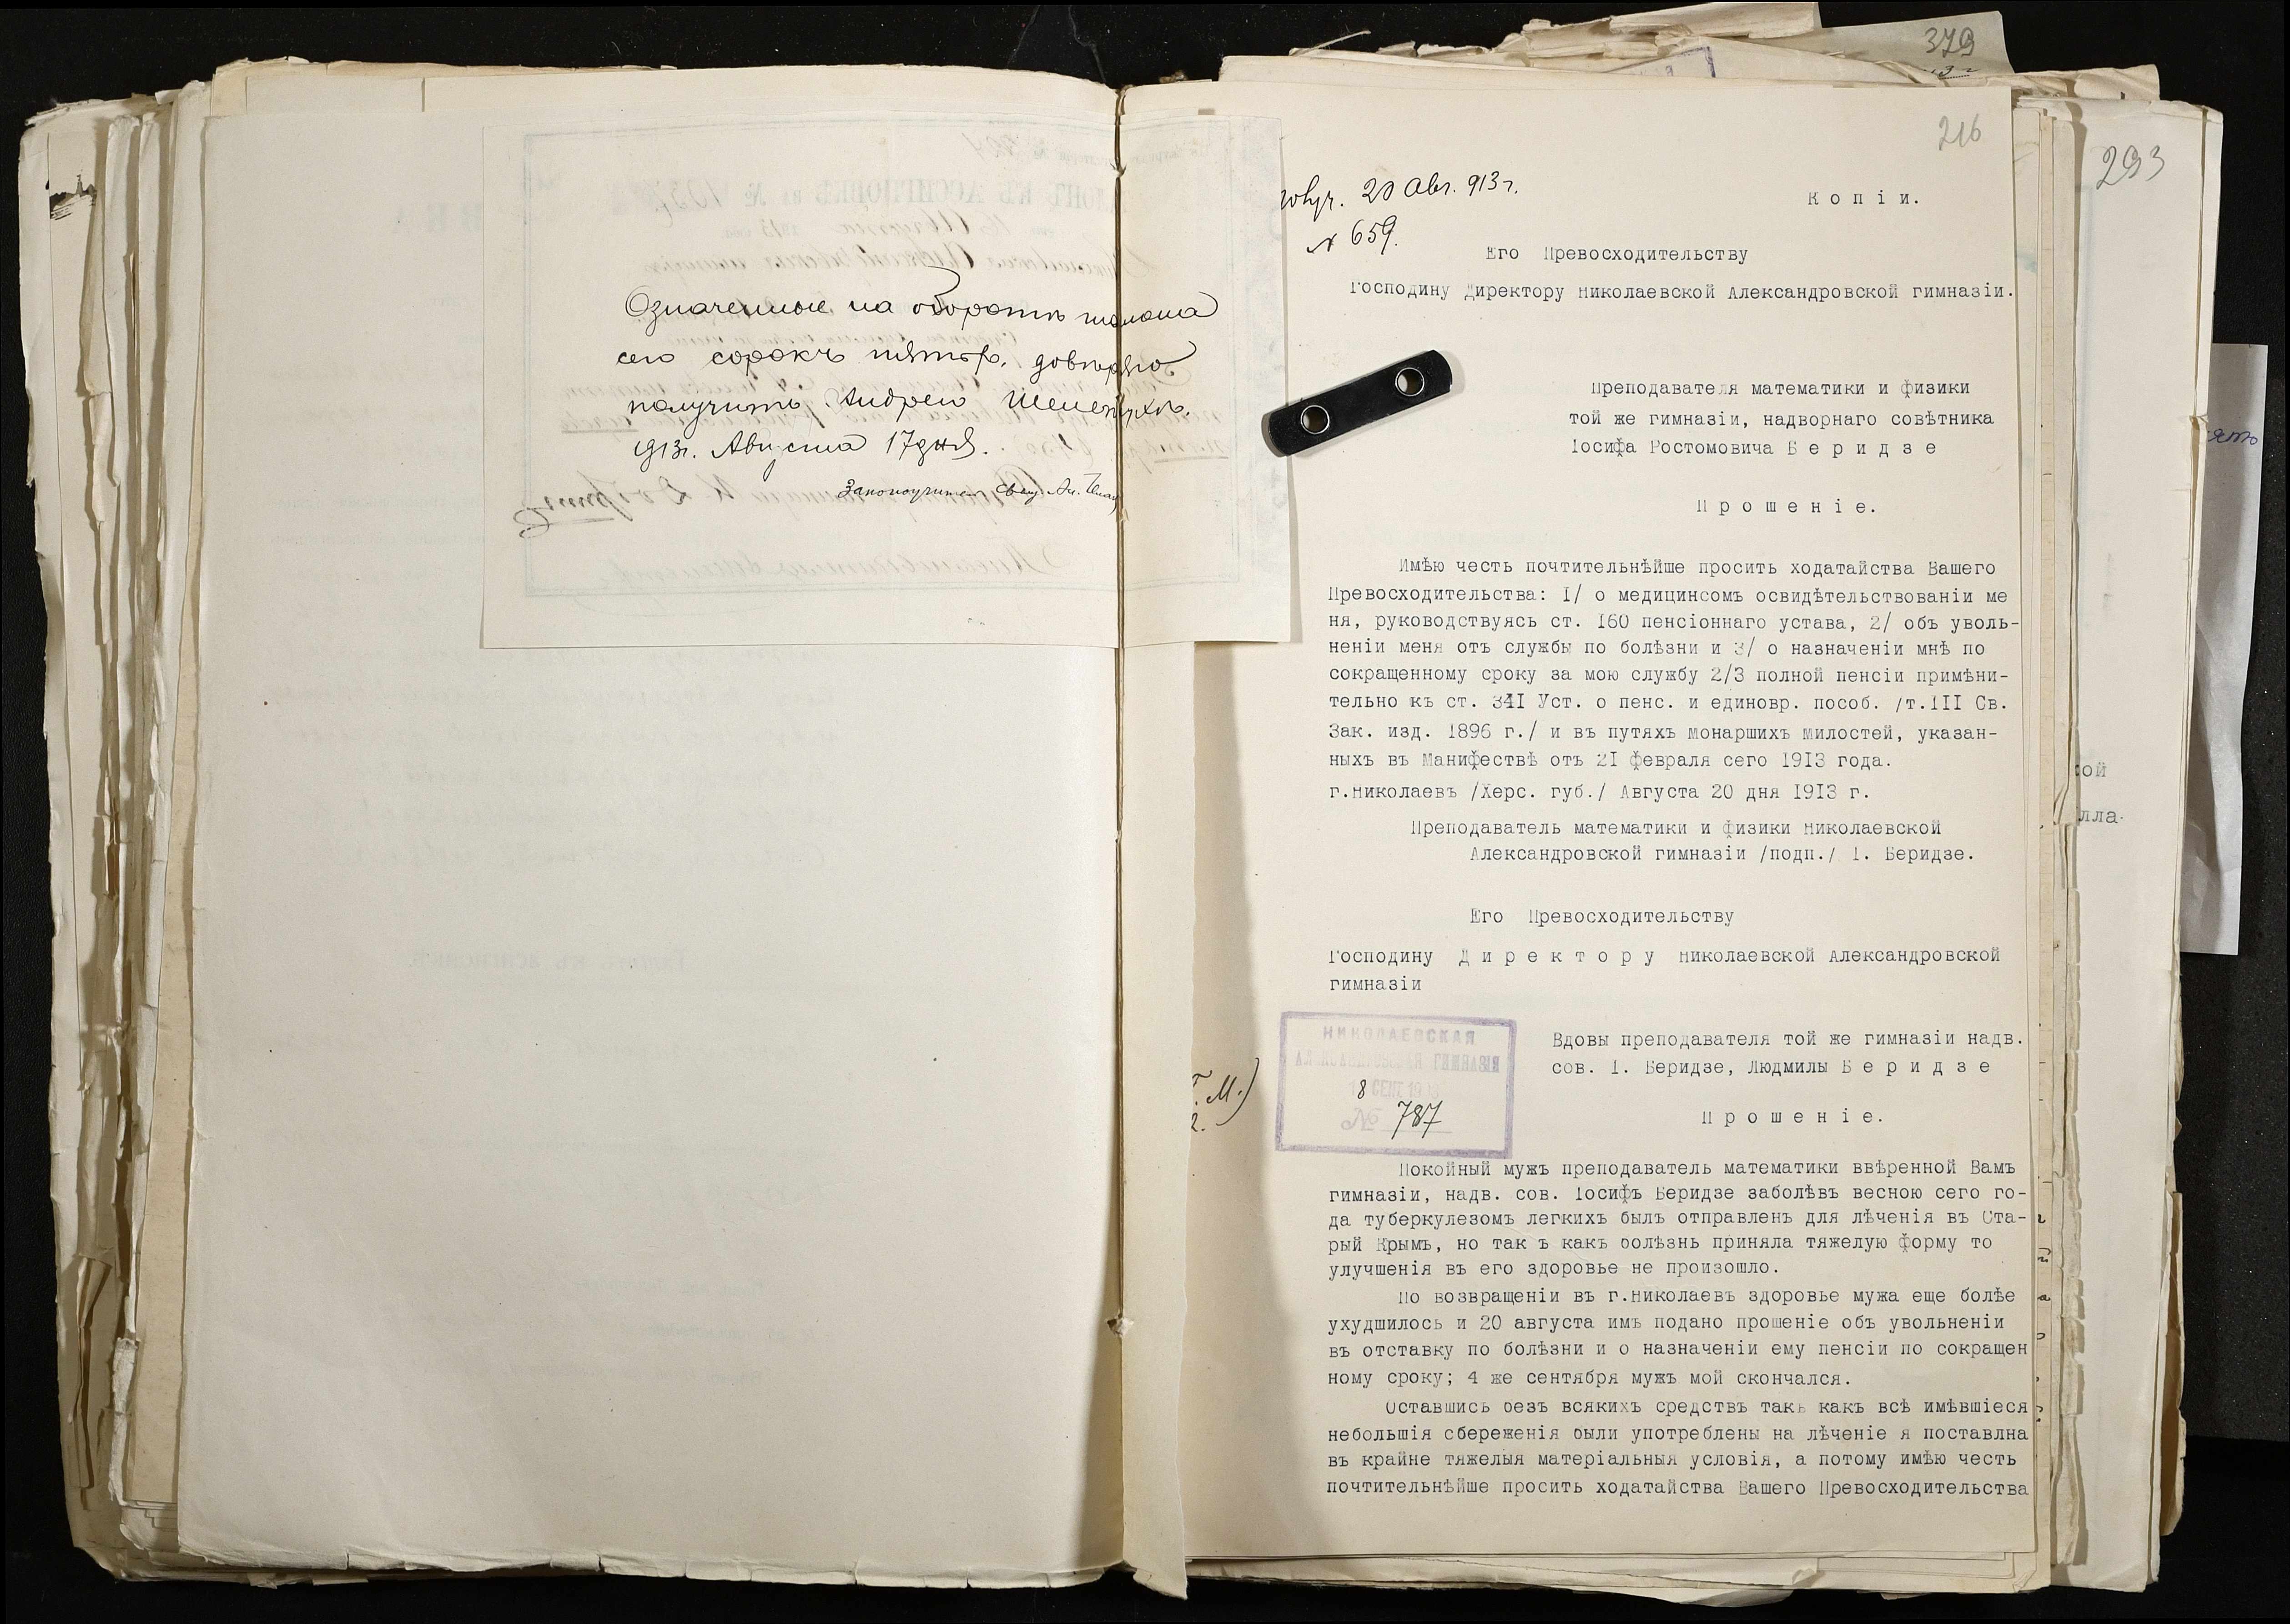 Означенные на оборотѣ талона
сего сорокъ пять р. довѣряю
получить Андрею
1913г. Августа 17 дня.
Законоучитель Свящ. Ал.
379
293
216
получ. 20 Авг. 913 г.
№ 659.
Копіи.
Его Превосходительству
Господину Директору Николаевской Александровской гимназіи.
Преподавателя математики и физики
той же гимназіи, надворнаго совѣтника
Іосифа Ростомовича Беридзе
Прошеніе.
Имѣю честь почтительнѣйше просить ходатайства Вашего
Превосходительства: I/ о медицинсомъ освидѣтельствованіи ме
ня, руководствуясь ст. I60 пенсіоннаго устава, 2/ объ уволь-
неніи меня отъ службы по болѣзни и 3/ о назначеніи мнѣ по
сокращенному сроку за мою службу 2/3 полной пенсіи примѣни-
тельно къ ст. 34I Уст. о пенс. и единовр. пособ. /т.III Св.
Зак. изд. I896 г./ и въ путяхъ Монаршихъ милостей, указан-
ныхъ въ Манифествѣ отъ 2I февраля сего I9I3 года.
г.Николаевъ /Херс. губ./ Августа 20 дня I9I3 г.
Преподаватель математики и физики Николаевской
Александровской гимназіи /подп./ І. Беридзе.
Его Превосходительству
Господину Директору Николаевской Александровской
гимназіи
НИКОЛАЕВСКАЯ
АЛЕКСАНДРОВСКАЯ ГИМНАЗІЯ
8 СЕНТ 19
№ 787
Вдовы преподавателя той же гимназіи надв.
сов. І. Беридзе, Людмилы Беридзе
Прошеніе.
Покойный мужъ преподаватель математики ввѣренной Вамъ
гимназіи, надв. сов. Іосифъ Беридзе заболѣвъ весною сего го-
да туберкулезомъ легкихъ былъ отправленъ для лѣченія въ Ста-
рый Крымъ, но так ъ какъ болѣзнь приняла тяжелую форму то
улучшенія въ его здоровье не произошло.
По возвращеніи въ г.Николаевъ здоровье мужа еще болѣе
ухудшилось и 20 августа имъ подано прошеніе объ увольненіи
въ отставку по болѣзни и о назначеніи ему пенсіи по сокращен
ному сроку; 4 же сентября мужъ мой скончался.
Оставшись безъ всякихъ средствъ такъ какъ всѣ имѣвшіеся
небольшія сбереженія были употреблены на лѣченіе я поставлна
въ крайне тяжелыя матеріальныя условія, а потому имѣю честь
почтительнѣйше просить ходатайства Вашего Превосходительства